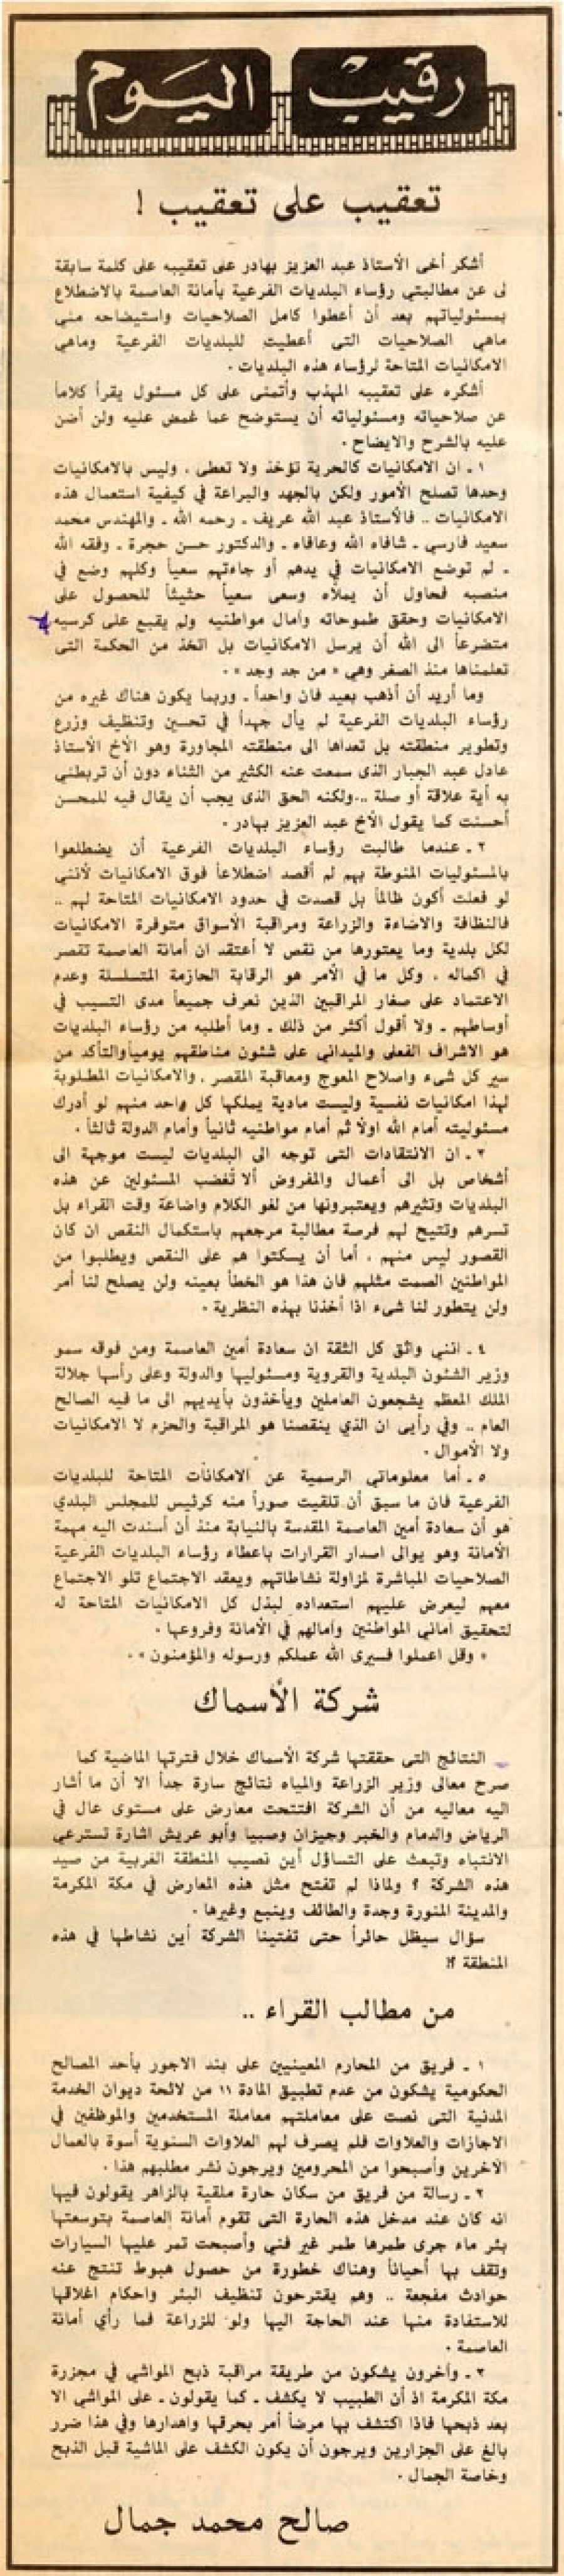 رقيب اليوم
تعقيب على تعقيب !
أشكر أخى الأستاذ عبد العزيز بهادر على تعقيبه على كلمة سابقة
لى عن مطالبتي رؤساء البلديات الفرعية بأمانة العاصمة بالاضطلاع
بمسئولياتهم بعد أن أعطوا كامل الصلاحيات واستيضاحه منى
ماهى الصلاحيات التى أعطيت للبلديات الفرعية وماهى
الامكانيات المتاحة لرؤساء هذه البلديات .
أشكره على تعقيبه المهذب وأتمنى على كل مسئول يقرأ كلاماً
عن صلاحياته ومسئولياته أن يستوضح عما غمض عليه ولن أضن
عليه بالشرح والايضاح .
١ ـ ان الامكانيات كالحرية تؤخذ ولا تعطى ، وليس بالامكانيات
وحدها تصلح الأمور ولكن بالجهد والبراعة في كيفية استعمال هذه
الامكانيات .. فالأستاذ عبد الله عريف ـ رحمه الله ـ والمهندس محمد
سعيد فارسي ـ شافاه الله وعافاه ـ والدكتور حسن حجرة ـ وفقه الله
ـ لم توضع الامكانيات في يدهم أو جاءتهم سعياً وكلهم وضع في
منصبه فحاول أن يملأه وسعى سعياً حثيثاً للحصول على
الامكانيات وحقق طموحاته وآمال مواطنيه ولم يقبع على كرسيه
متضرعاً الى الله أن يرسل الامكانيات بل اتخذ من الحكمة التى
تعلمناها منذ الصغر وهى « من جد وجد » .
وما أريد أن أذهب بعيد فان واحداً ـ وربما يكون هناك غيره من
رؤساء البلديات الفرعية لم يأل جهداً في تحسين وتنظيف وزرع
وتطوير منطقته بل تعداها الى منطقته المجاورة وهو الأخ الأستاذ
عادل عبد الجبار الذى سمعت عنه الكثير من الثناء دون أن تربطني
به أية علاقة أو صلة .. ولكنه الحق الذى يجب أن يقال فيه للمحسن
أحسنت كما يقول الأخ عبد العزيز بهادر .
٢ ـ عندما طالبت رؤساء البلديات الفرعية أن يضطلعوا
بالمسئوليات المنوطة بهم لم أقصد اضطلاعاً فوق الامكانيات لأننى
لو فعلت أكون ظالماً بل قصدت في حدود الامكانيات المتاحة لهم ..
فالنظافة والاضاءة والزراعة ومراقبة الأسواق متوفرة الامكانيات
لكل بلدية وما يعتورها من نقص لا أعتقد ان أمانة العاصمة تقصر
في اكماله ، وكل ما في الأمر هو الرقابة الحازمة المتسلسلة وعدم
الاعتماد على صغار المراقبين الذين نعرف جميعاً مدى التسيب في
أوساطهم ـ ولا أقول أكثر من ذلك ـ وما أطلبه من رؤساء البلديات
هو الاشراف الفعلى والميداني على شئون مناطقهم يومياً والتأكد من
سير كل شىء واصلاح المعوج ومعاقبة المقصر ، والامكانيات المطلوبة
لهذا امكانيات نفسية وليست مادية يملكها كل واحد منهم لو أدرك
مسئوليته أمام الله أولا ثم أمام مواطنيه ثانياً وأمام الدولة ثالثاً .
٣ ـ ان الانتقادات التى توجه الى البلديات ليست موجهة الى
أشخاص بل الى أعمال والمفروض ألا تُغضب المسئولين عن هذه
البلديات وتثيرهم ويعتبرونها من لغو الكلام واضاعة وقت القراء بل
تسرهم وتتيح لهم فرصة مطالبة مرجعهم باستكمال النقص ان كان
القصور ليس منهم ، أما أن يسكتوا هم على النقص ويطلبوا من
المواطنين الصمت مثلهم فان هذا هو الخطأ بعينه ولن يصلح لنا أمر
ولن يتطور لنا شىء اذا أخذنا بهذه النظرية .
٤ ـ اننى واثق كل الثقة ان سعادة أمين العاصمة ومن فوقه سمو
وزير الشئون البلدية والقروية ومسئوليها والدولة وعلى رأسها جلالة
الملك المعظم يشجعون العاملين ويأخذون بأيديهم الى ما فيه الصالح
العام .. وفي رأيى ان الذي ينقصنا هو المراقبة والحزم لا الامكانيات
ولا الأموال .
٥ ـ أما معلوماتي الرسمية عن الامكانات المتاحة للبلديات
الفرعية فان ما سبق أن تلقيت صوراً منه كرئيس للمجلس البلدي
هو أن سعادة أمين العاصمة المقدسة بالنيابة منذ أن أسندت اليه مهمة
الأمانة وهو يوالى اصدار القرارات باعطاء رؤساء البلديات الفرعية
الصلاحيات المباشرة لمزاولة نشاطاتهم ويعقد الاجتماع تلو الاجتماع
معهم ليعرض عليهم استعداده لبذل كل الامكانيات المتاحة له
لتحقيق أماني المواطنين وآمالهم في الأمانة وفروعها .
« وقل اعملوا فسيرى الله عملكم ورسوله والمؤمنون » .
شركة الأسماك
النتائج التى حققتها شركة الأسماك خلال فترتها الماضية كما
صرح معالى وزير الزراعة والمياه نتائج سارة جداً الا أن ما أشار
اليه معاليه من أن الشركة افتتحت معارض على مستوى عال في
الرياض والدمام والخبر وجيزان وصبيا وأبو عريش اشارة تسترعى
الانتباه وتبعث على التساؤل أين نصيب المنطقة الغربية من صيد
هذه الشركة ؟ ولماذا لم تفتح مثل هذه المعارض في مكة المكرمة
والمدينة المنورة وجدة والطائف وينبع وغيرها .
سؤال سيظل حائراً حتى تفتينا الشركة أين نشاطها في هذه
المنطقة ؟!
من مطالب القراء ..
١ ـ فريق من المحارم المعينيين على بند الاجور بأحد المصالح
الحكومية يشكون من عدم تطبيق المادة ١١ من لائحة ديوان الخدمة
المدنية التى نصت على معاملتهم معاملة المستخدمين والموظفين في
الاجازات والعلاوات فلم يصرف لهم العلاوات السنوية أسوة بالعمال
الآخرين وأصبحوا من المحرومين ويرجون نشر مطلبهم هذا .
٢ ـ رسالة من فريق من سكان حارة ملقية بالزاهر يقولون فيها
انه كان عند مدخل هذه الحارة التى تقوم أمانة العاصمة بتوسعتها
بئر ماء جرى طمرها طمر غير فني وأصبحت تمر عليها السيارات
وتقف بها أحياناً وهناك خطورة من حصول هبوط تنتج عنه
حوادث مفجعة .. وهم يقترحون تنظيف البئر واحكام اغلاقها
للاستفادة منها عند الحاجة اليها ولو للزراعة فما رأي أمانة
العاصمة .
٣ ـ وآخرون يشكون من طريقة مراقبة ذبح المواشي في مجزرة
مكة المكرمة اذ أن الطبيب لا يكشف ـ كما يقولون ـ على المواشي الا
بعد ذبحها فاذا اكتشف بها مرضاً أمر بحرقها واهدارها وفي هذا ضرر
بالغ على الجزارين ويرجون أن يكون الكشف على الماشية قبل الذبح
وخاصة الجمال .
صالح محمد جمال